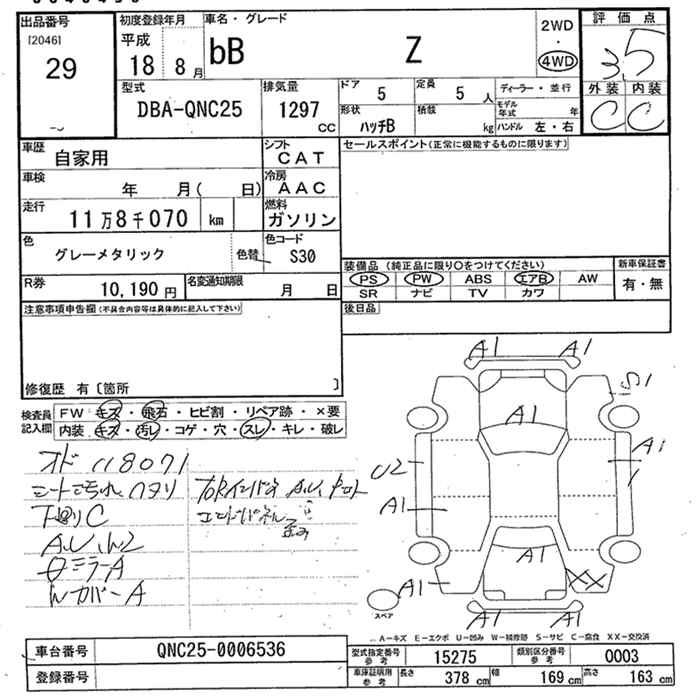 出品番号
[2046]
29
初度登録年月
平成
18 8 月
車名・グレード
bB Z
2WD
・
4WD
評価点
3.5
外装 内装
C C
型式
DBA-QNC25
排気量
1297
CC
ドア 5
定員 5 人
形状 ハッチB
積載 kg
ディーラー・並行
モデル年式 年
ハンドル 左・右
車歴 自家用
シフト CAT
車検 年 月( 日)
冷房 AAC
走行 11万8千070 km
燃料 ガソリン
色 グレーメタリック
色替
色コード S30
R券 10,190 円
名変通知期限 月 日
セールスポイント(正常に機能するものに限ります)
装備品 (純正品に限り○をつけてください)
PS PW ABS エアB AW
SR ナビ TV カワ
新車保証書
有・無
後日品
注意事項申告欄(不具合内容等は具体的に記入して下さい)
修復歴 有〔箇所 〕
検査員記入欄
FW キズ・飛石・ヒビ割・リペア跡・×要
内装 キズ・汚レ・コゲ・穴・スレ・キレ・破レ
オド118071
シートこげ穴 ヘタリ
下廻りC
A.U.W2
ミラーA
Wカバー A
A1 A1
S1
A1
A1
U2
A1
A1
A1
XX
A1 A1
スペア
A-キズ E-エクボ U-凹み W-補修跡 S-サビ C-腐食 XX-交換済
車台番号 QNC25-0006536
登録番号
型式指定番号 参考 15275
類別区分番号 参考 0003
車庫証明用 参考
長さ 378 cm
幅 169 cm
高さ 163 cm